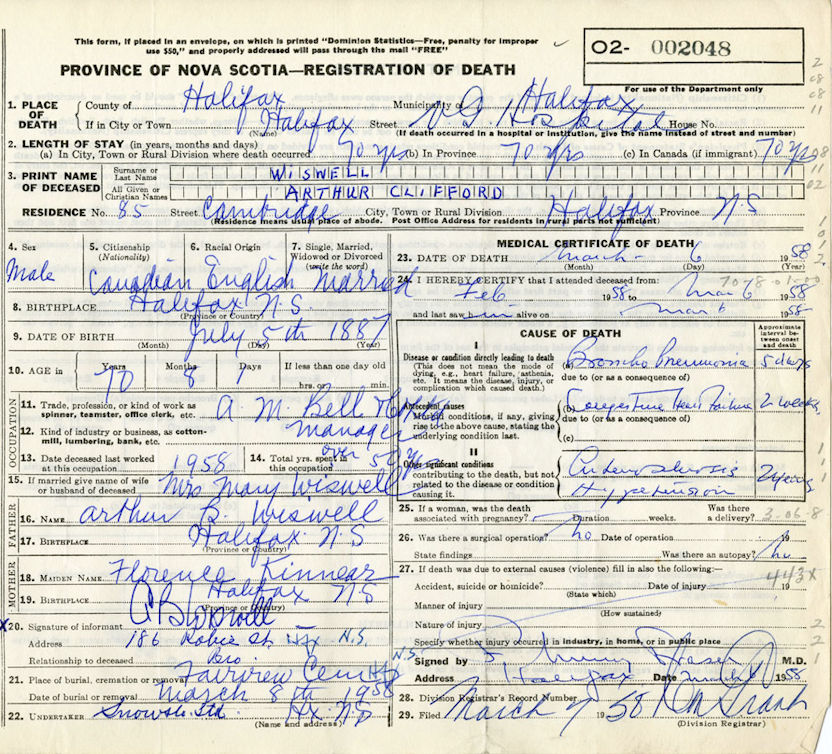 This form, if placed in an envelope, on which is printed "Dominion Statistics—Free, penalty for improper
use $50," and properly addressed will pass through the mail "FREE"
O2- 002048
PROVINCE OF NOVA SCOTIA—REGISTRATION OF DEATH
For use of the Department only
1. PLACE OF DEATH County of Halifax Municipality of Halifax
If in City or Town Halifax Street V G Hospital House No.
(Name) (If death occurred in a hospital or institution, give the name instead of street and number)
2. LENGTH OF STAY (in years, months and days)
(a) In City, Town or Rural Division where death occurred 70 yrs (b) In Province 70 yrs (c) In Canada (if immigrant) 70 yrs
3. PRINT NAME OF DECEASED Surname or Last Name WISWELL
All Given or Christian Names ARTHUR CLIFFORD
RESIDENCE No. 85 Street Cambridge City, Town or Rural Division Halifax Province N S
(Residence means usual place of abode. Post Office Address for residents in rural parts not sufficient)
4. Sex 5. Citizenship (Nationality) 6. Racial Origin 7. Single, Married, Widowed or Divorced (write the word)
Male Canadian English Married
8. BIRTHPLACE Halifax N.S.
(Province or Country)
9. DATE OF BIRTH July 5th 1887
(Month) (Day) (Year)
10. AGE in Years Months Days If less than one day old
70 8 1 hrs. or min.
OCCUPATION
11. Trade, profession, or kind of work as spinner, teamster, office clerk, etc. A. M. Bell
12. Kind of industry or business, as cotton-mill, lumbering, bank, etc. manager
13. Date deceased last worked at this occupation 1958 14. Total yrs. spent in this occupation over 50 yrs
15. If married give name of wife or husband of deceased Mrs Mary Wiswell
FATHER
16. NAME Arthur B. Wiswell
17. BIRTHPLACE Halifax N.S
(Province or Country)
MOTHER
18. MAIDEN NAME Florence Kinnear
19. BIRTHPLACE Halifax N S
(Province or Country)
X20. Signature of informant
Address 186 Robie St Hfx N.S.
Relationship to deceased Bro
21. Place of burial, cremation or removal Fairview Cem Hfx N.S.
Date of burial or removal March 8th 1958
22. UNDERTAKER Snows Ltd. Hx. N.S
(Name and address)
MEDICAL CERTIFICATE OF DEATH
23. DATE OF DEATH March 6 1958
(Month) (Day) (Year)
24. I HEREBY CERTIFY that I attended deceased from:
Feb 1958 to Mar 6 1958
and last saw him alive on Mar 6 1958
CAUSE OF DEATH
Approximate interval between onset and death
I
Disease or condition directly leading to death
(This does not mean the mode of dying, e.g., heart failure, asthenia, etc. It means the disease, injury, or complication which caused death.)
(a) Broncho Pneumonia 5 days
due to (or as a consequence of)
Antecedent causes
Morbid conditions, if any, giving rise to the above cause, stating the underlying condition last.
(b) Congestive Heart Failure 2 weeks
due to (or as a consequence of)
(c)
II
Other significant conditions
contributing to the death, but not related to the disease or condition causing it.
Arteriosclerosis
Hypertension
25. If a woman, was the death associated with pregnancy? Duration weeks. Was there a delivery? 3-06-8
26. Was there a surgical operation? no Date of operation 19
State findings Was there an autopsy? no
27. If death was due to external causes (violence) fill in also the following:—
443X
Accident, suicide or homicide? Date of injury 19
(State which)
Manner of injury
(How sustained)
Nature of injury
Specify whether injury occurred in industry, in home, or in public place
Signed by M.D.
Address Halifax N.S. Date March 6 1958
28. Division Registrar's Record Number
29. Filed March 7 1958
(Division Registrar)